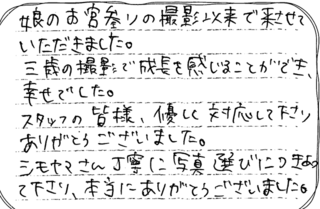 娘のお宮参りの撮影以来で来させて
いただきました。
三歳の撮影で成長を感じることができ、
幸せでした。
スタッフの皆様、優しく対応して下さり
ありがとうございました。
シモヤマさん丁寧に写真選びにつきあっ
て下さり、本当にありがとうございました。